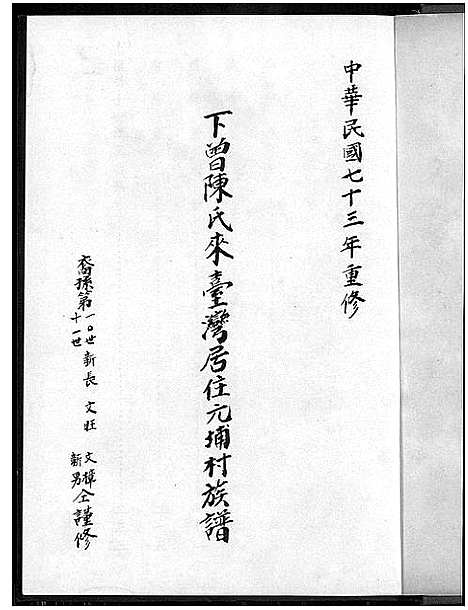 中華民國七十三年重修
下曾陳氏來臺灣居住元埔村族譜
裔孫第一〇世 新長 文旺 文樟 仝謹修
十一世 新男